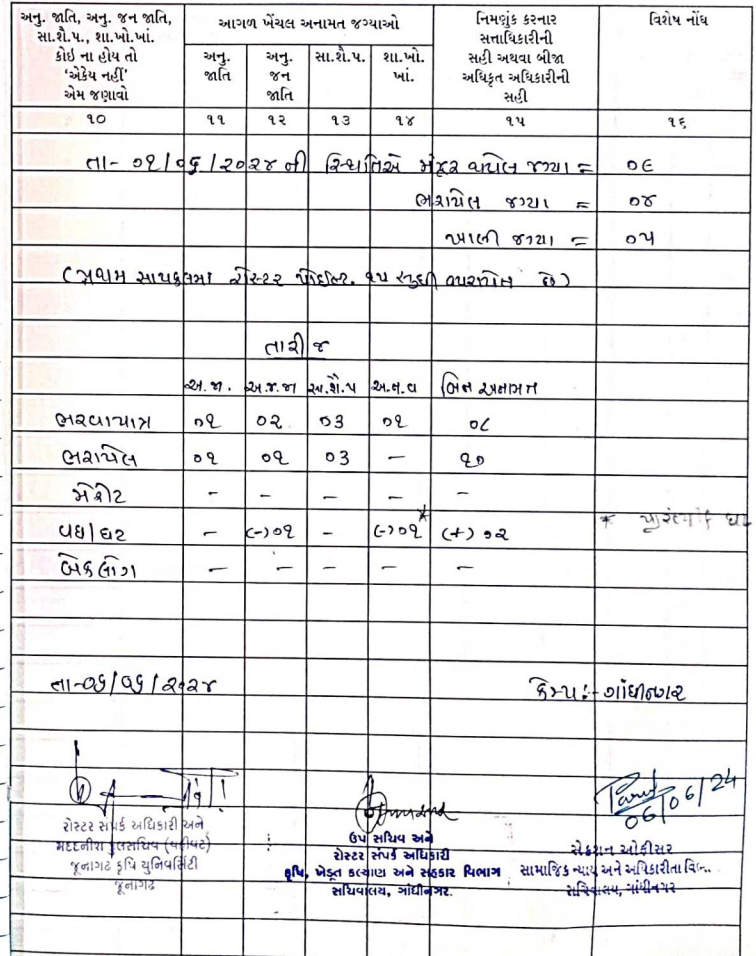 અનુ. જાતિ, અનુ. જન જાતિ, સા.શૈ.પ., શા.ખો.ખાં. કોઇ ના હોય તો 'એકેય નહીં' એમ જણાવો
આગળ ખેંચલ અનામત જગ્યાઓ
અનુ. જાતિ
અનુ. જન જાતિ
સા.શૈ.પ.
શા.ખો. ખાં.
નિમણુંક કરનાર સત્તાધિકારીની સહી અથવા બીજા અધિકૃત અધિકારીની સહી
વિશેષ નોંધ
૧૦ ૧૧ ૧૨ ૧૩ ૧૪ ૧૫ ૧૬
તા- ૦૧/૦૬/૨૦૨૪ ની સ્થિતિએ મંજૂર થયેલ જગ્યા = ૦૯
ભરાયેલ જગ્યા = ૦૪
ખાલી જગ્યા = ૦૫
(પ્રથમ સાયકલમાં રોસ્ટર પોઇન્ટ ૧૫ સુધી વપરાયેલ છે)
તારીજ
અ.જા. અ.જ.જા સા.શૈ.પ આ.ન.વ બિન અનામત
ભરવાપાત્ર ૦૧ ૦૨ ૦૩ ૦૧ ૦૮
ભરાયેલ ૦૧ ૦૧ ૦૩ - ૧૦
મેરીટ - - - - -
વધ/ઘટ - (-)૦૧ - (-)૦૧* (+)૦૨ * ઘટ
બેકલોગ - - - - -
તા-૦૬/૦૬/૨૦૨૪ કેમ્પ:- ગાંધીનગર
06/06/24
રોસ્ટર સંપર્ક અધિકારી અને
મદદનીશ કુલસચિવ (વહીવટ)
જૂનાગઢ કૃષિ યુનિવર્સિટી
જૂનાગઢ
ઉપ સચિવ અને
રોસ્ટર સંપર્ક અધિકારી
કૃષિ, ખેડૂત કલ્યાણ અને સહકાર વિભાગ
સચિવાલય, ગાંધીનગર.
સેકશન ઓફીસર
સામાજિક ન્યાય અને અધિકારીતા વિભાગ
સચિવાલય, ગાંધીનગર